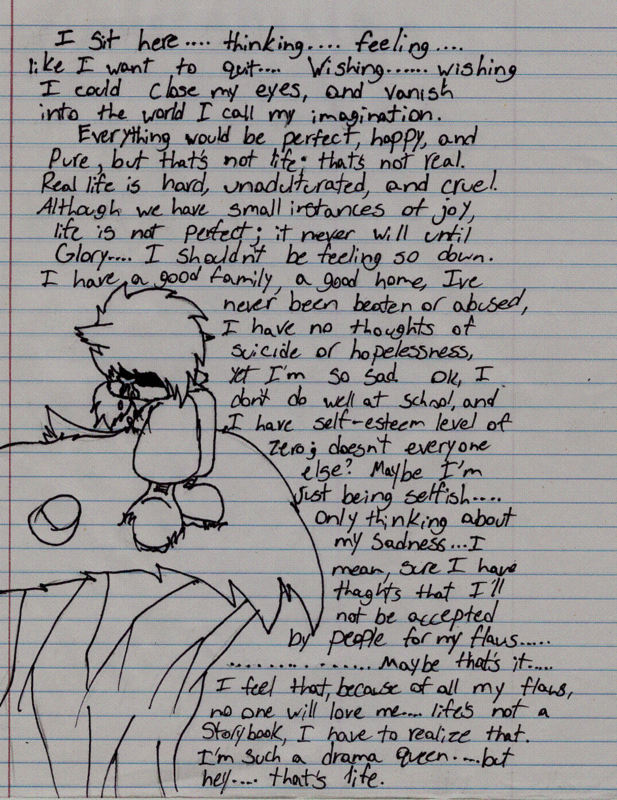 I sit here.... thinking.... feeling....
like I want to quit.... Wishing...... wishing
I could close my eyes, and vanish
into the world I call my imagination.
Everything would be perfect, happy, and
Pure, but that's not life; that's not real.
Real life is hard, unadulturated, and cruel.
Although we have small instances of joy,
life is not perfect; it never will until
Glory.... I shouldn't be feeling so down.
I have a good family, a good home, I've
never been beaten or abused,
I have no thoughts of
suicide or hopelessness,
yet I'm so sad. Ok, I
don't do well at school, and
I have self-esteem level of
zero; doesn't everyone
else? Maybe I'm
just being selfish....
Only thinking about
my sadness...I
mean, sure I have
thaghts that I'll
not be accepted
by people for my flaws.....
.................. Maybe that's it.....
I feel that, because of all my flaws,
no one will love me.... life's not a
Storybook, I have to realize that.
I'm such a drama queen.....but
hey.... that's life.